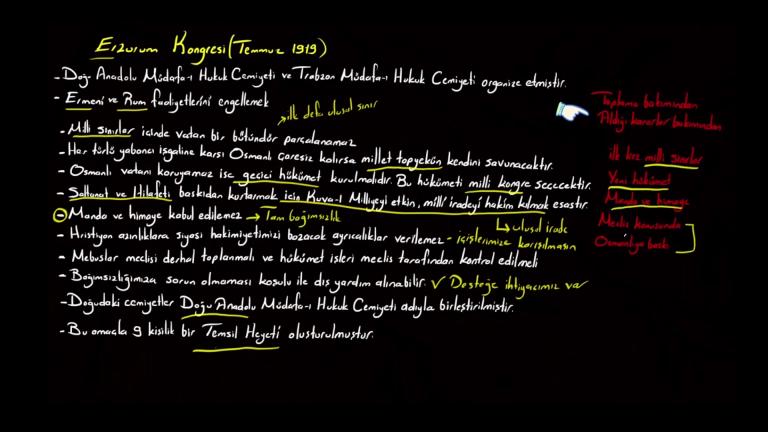 Erzurum Kongresi (Temmuz 1919)
- Doğu Anadolu Müdafa-ı Hukuk Cemiyeti ve Trabzon Müdafa-ı Hukuk Cemiyeti organize etmiştir.
- Ermeni ve Rum faaliyetlerini engellemek
→ ilk defa ulusal sınır
- Milli sınırlar içinde vatan bir bütündür parçalanamaz
- Her türlü yabancı işgaline karşı Osmanlı çaresiz kalırsa millet topyekün kendini savunacaktır.
- Osmanlı vatanı koruyamaz ise geçici hükümet kurulmalıdır. Bu hükümeti milli kongre seçecektir.
- Saltanat ve Hilafeti baskıdan kurtarmak için Kuva-ı Milliyeyi etkin, milli iradeyi hakim kılmak esastır.
- Manda ve himaye kabul edilemez → Tam bağımsızlık
↳ ulusal irade
- Hristiyan azınlıklara siyasi hakimiyetimizi bozacak ayrıcalıklar verilemez - içişlerimize karışılmasın
- Mebuslar meclisi derhal toplanmalı ve hükümet işleri meclis tarafından kontrol edilmeli
- Bağımsızlığımıza sorun olmaması koşulu ile dış yardım alınabilir. ✓ Desteğe ihtiyacımız var
- Doğudaki cemiyetler Doğu Anadolu Müdafa-ı Hukuk Cemiyeti adıyla birleştirilmiştir.
- Bu amaçla 9 kişilik bir Temsil Heyeti oluşturulmuştur.
Toplanma bakımından
Aldığı kararlar bakımından
ilk kez milli sınırlar
Yeni hükümet
Manda ve himaye
Meclis konusunda
Osmanlıya baskı